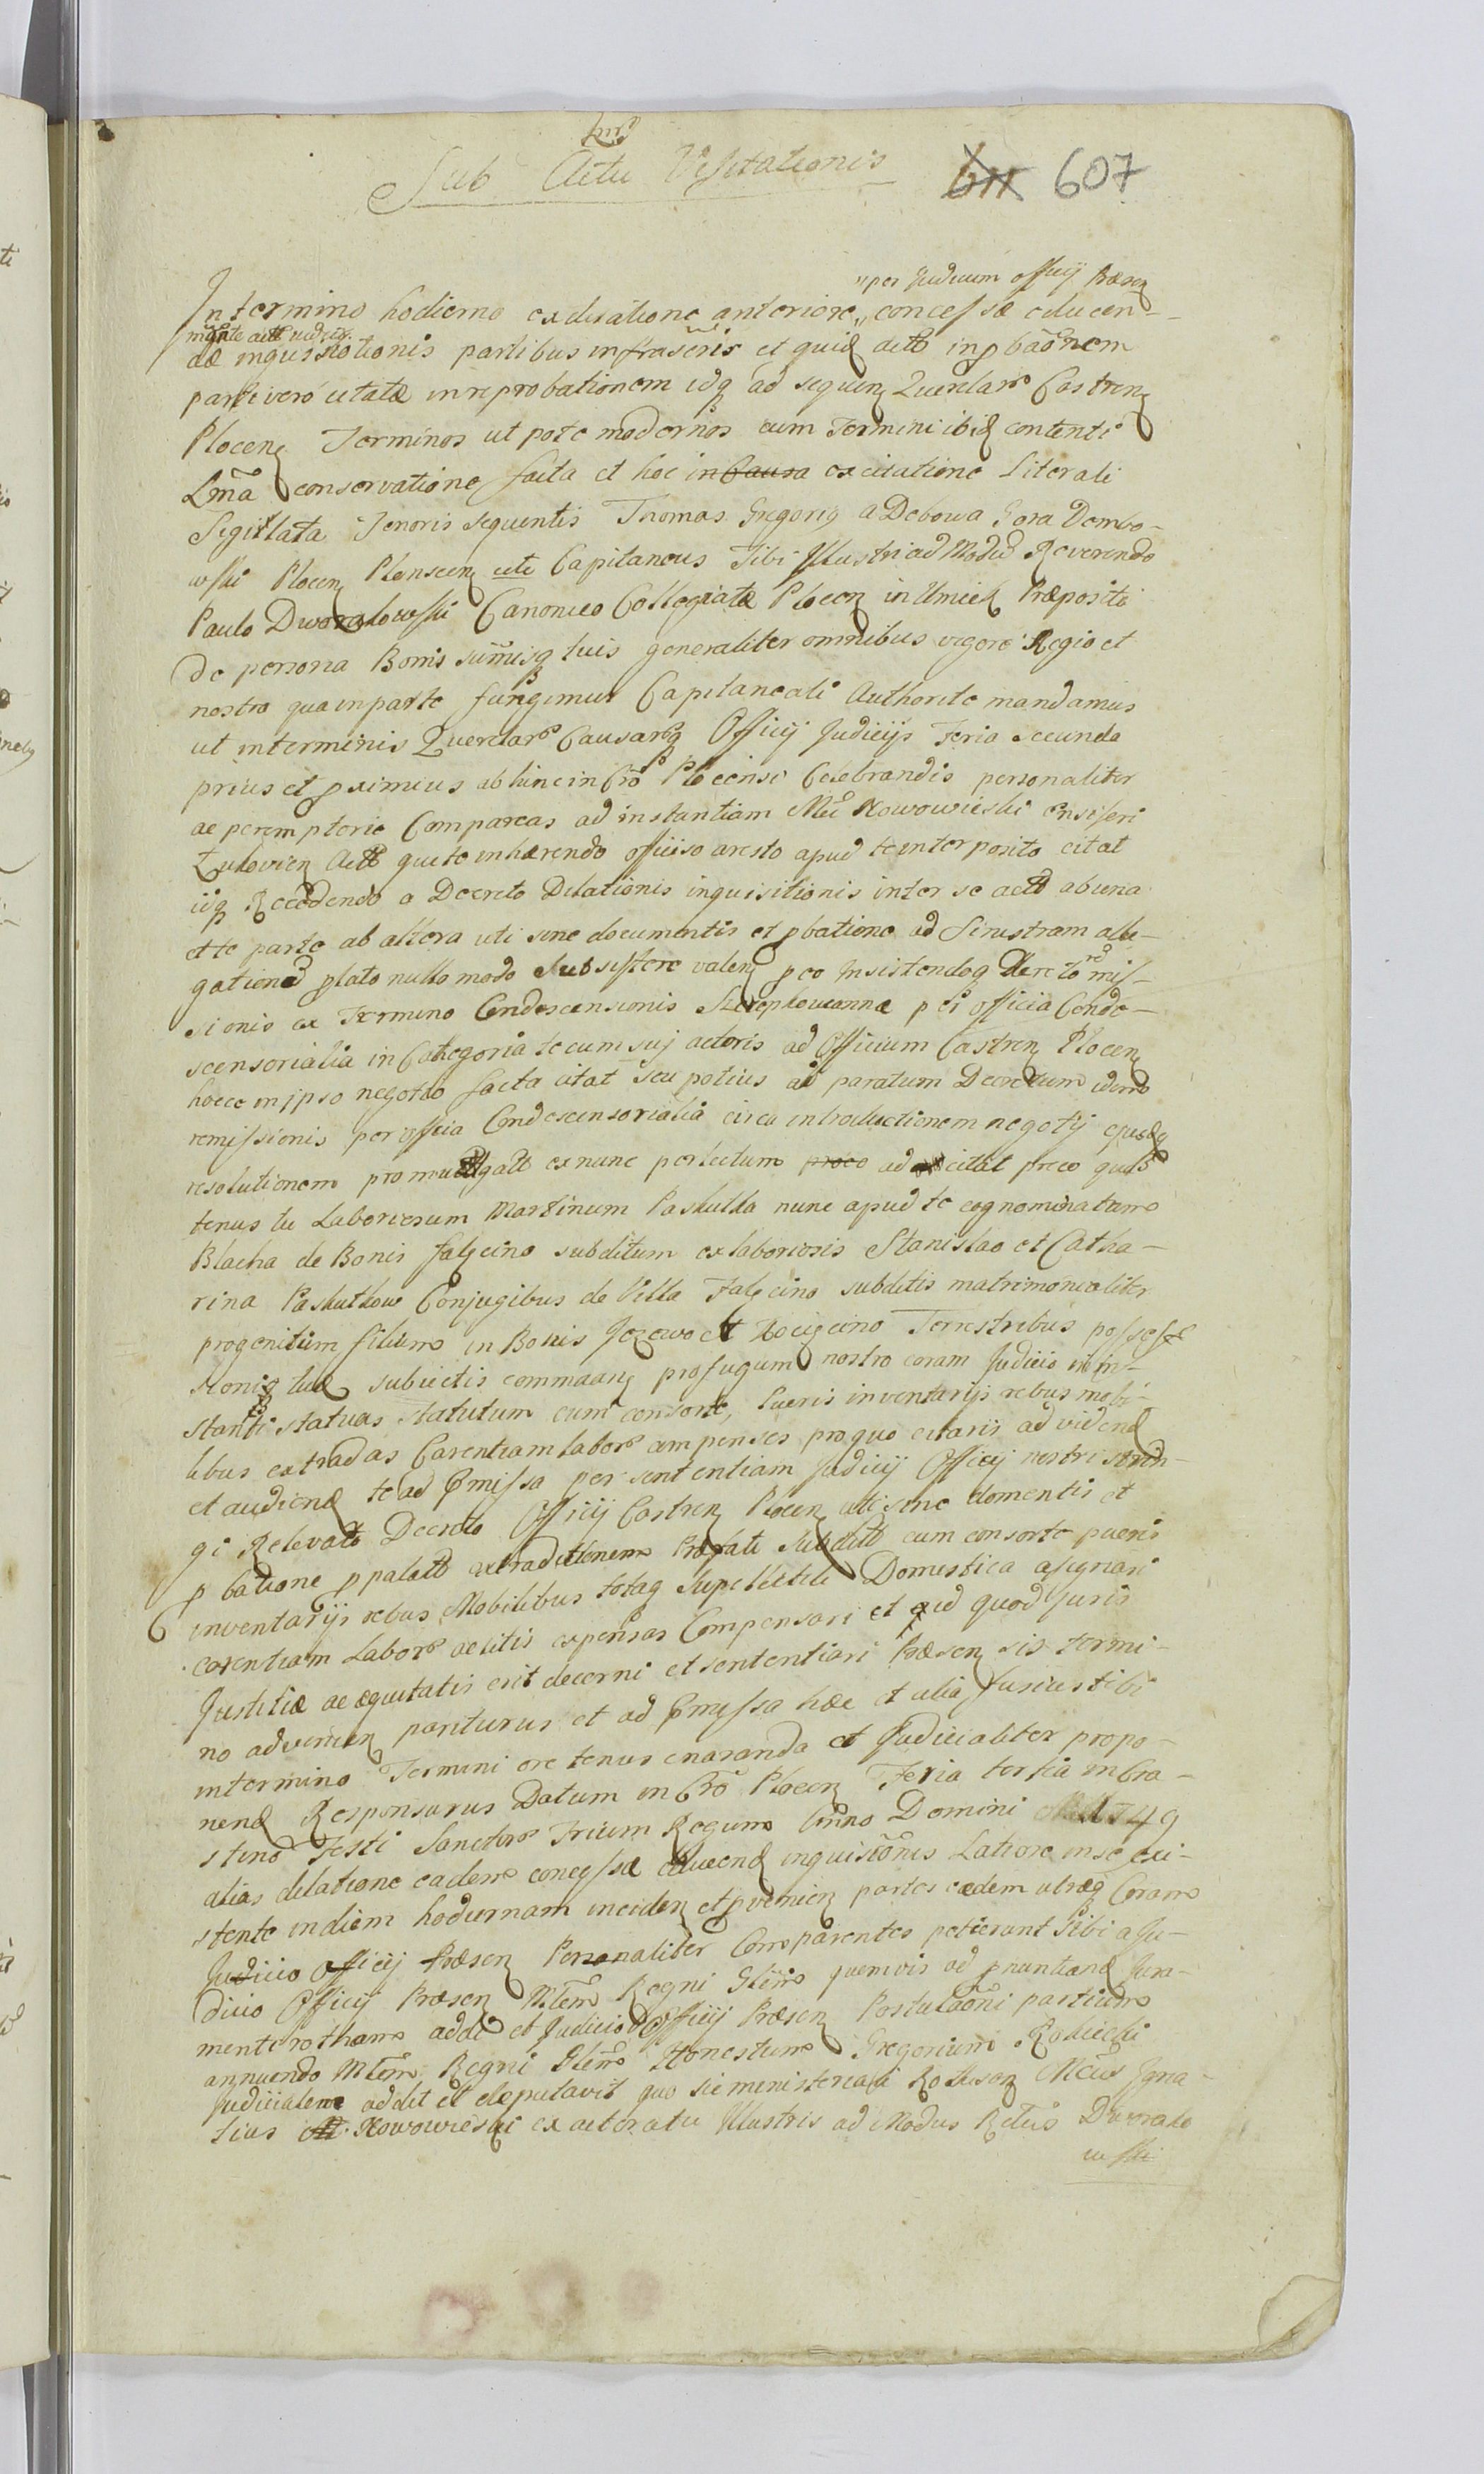 Sub Actu Visitationis
611 607
"per Judicium officij Præsen
In termino hodierno ex dilatione anteriore " concessæ educen-
dæ inquisitionis partibus infrascris et quid actō in pbaōnem
parti verò citatæ in reprobationem idq ad sequen Querelarō Castren
Plocen Terminos ut pote modernos cum Termini ibid contenti
Lmā conservatione facta et hoc in Causa ex citatione Literali
Sigillata Tenoris sequentis Thomas Gregorig a Debowa Gora Dembo-
wski Plocen Plonscen etc Capitaneus Tibi Illustri ad Modū Reverendo
Paulo Dworakowski Canonico Collegiatæ Plocen in Umieh Præposito
De persona Bonis summisq tuis generaliter omnibus vigore Regio et
nostro qua in parte fungimur Capitaneali Authorite mandamus
ut in terminis Querelarō Causarq Officij Judicijs Feria Secunda
prius et pximius ab hinc in Crō Plocensi Celebrandis personaliter
ac peremptorie Compareas ad instantiam Mci Nowowieski Ensiferi
que te inhærendo officioso aresto apud te interposito citat
iq Recedendo a Decreto Dilationis inquisitionis inter se actō ab una
et te parte ab altera uti sine documentis et pbatione ad Sinistram alle-
gationē plato nullo modo Subsistere valen peo Insistendoq Decreto remis-
sionis ex Termino Condescensionis per officia Conde-
scensorialia in Cathegoria tecum suj actoris ad Officium Castren Plocen
hocce in ipso negotio facta citat seu potius ad paratum Decretum idem
remissionis per officia Condescensorialia circa introductionem negotij ejusdq
resolutionem promulgatō ex nunc perlectum proco ad citat preco quā
tenus tu Laboriosum Martinum Paskutka nunc apud te cognominatum
Blacha de Bonis Falęcino subditum ex laboriosis Stanislao et Catha-
rina Paskutkow Conjugibus de Villa Falęcino subditis matrimonialiter
progenitum filium in Bonis Jezewo et Kocięcino Terrestribus possess
sionis tuæ subiectis commaan profugum nostro coram Judicio in in-
stanti statuas Statutum cum consorte, Pueris inventarijs rebus mobi-
libus extradas Carentiam laborō ac impenses pro quo citaris ad videnđ
et audienđ te ad Præmissa per sententiam Judicij Officij nostri strin-
gi Relevato Decreto Officij Castren Plocen uti sine domentis et
p batione ppalatō extraditionem Præfati subditi cum consorte pueris
inventarijs rebus Mobilibus totaq Supellectili Domestica assignari
carentiam Laborō ac litis expensas Compensari et id quod Juris
Justitiæ ac æquitatis erit decerni et sententiari Præsen sis termi-
no advenien pariturus et ad Præmissa hæc et alia fusius tibi
in termino Termini ore tenus enaranda et Judicialiter propo-
nenđ Responsurus Datum in Crō Plocen Feria tertia in Cra-
stino Festi Sanctorō Trium Regum Anno Domini 1749
alias dilatione eadem concessæ educenđ inquisiōnis Latiore in se exi-
stente in diem hodiernam inciden et pvenien partes eædem utræq Coram
Judicio Officij Præsen Personaliter Comparentes petierunt Sibi a Ju-
dicio Officij Præsen Mlem Regni Glēm quemvis ad pnuntianđ Jura-
menti rotham addi et Judicio Officij Præsen Postulaōni partium
annuendo Mlem Regni Glēm Honestum Gregorium Rościcki
Judicialem addit et deputavit quo sic ministeriali Mcus Igna-
tius Nowowieski ex actoratu Illustris ad Modus Rndus Dworako
wski